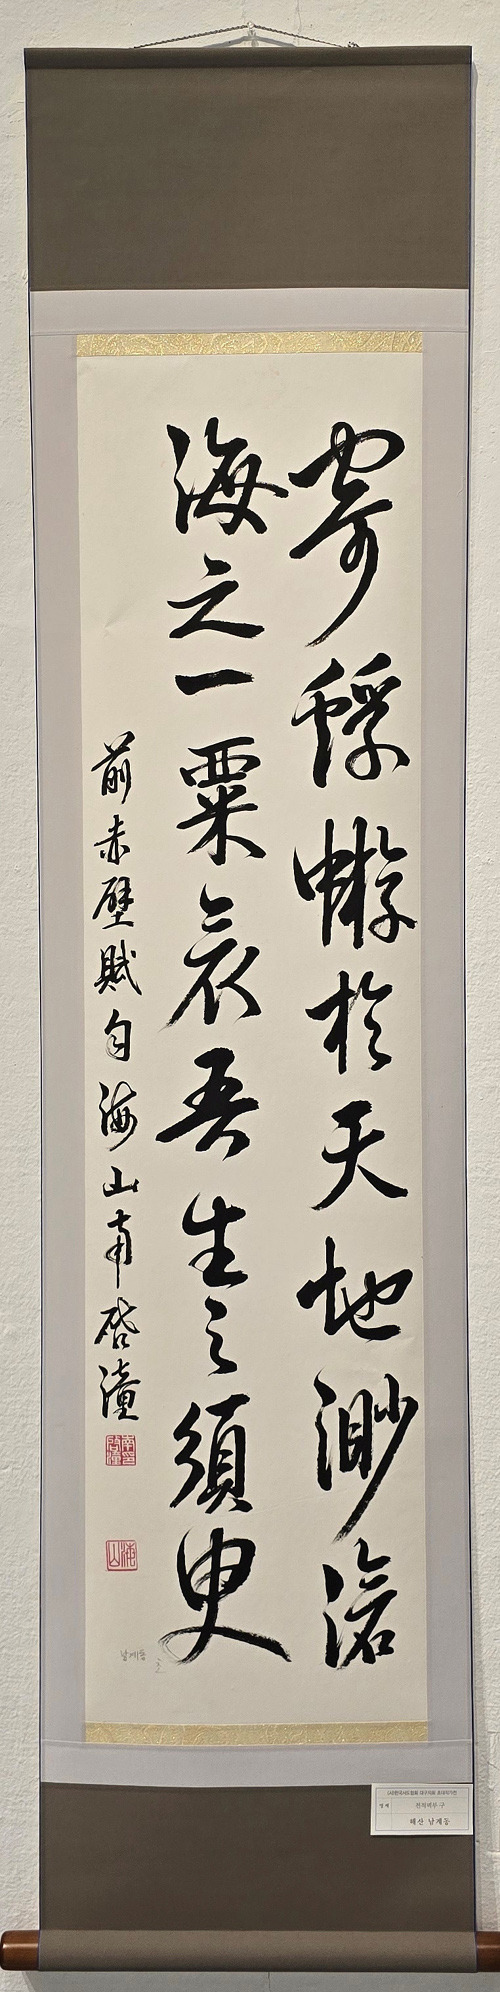 寄蜉蝣於天地渺滄
海之一粟哀吾生之須臾
前赤壁賦句 海山 南啓潼
南啓潼印
海山
남계동
(사)한국서도협회 대구지회 초대작가전
명제 전적벽부 구
해산 남계동